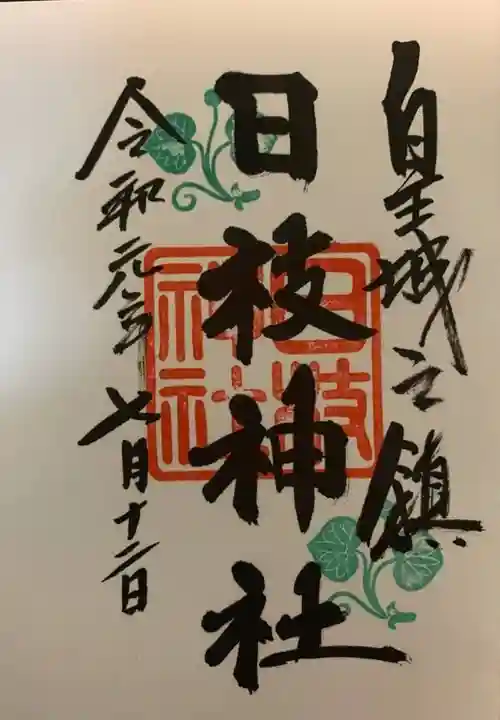 皇城之鎮
日枝神社
日枝
神社
令和元年七月十二日